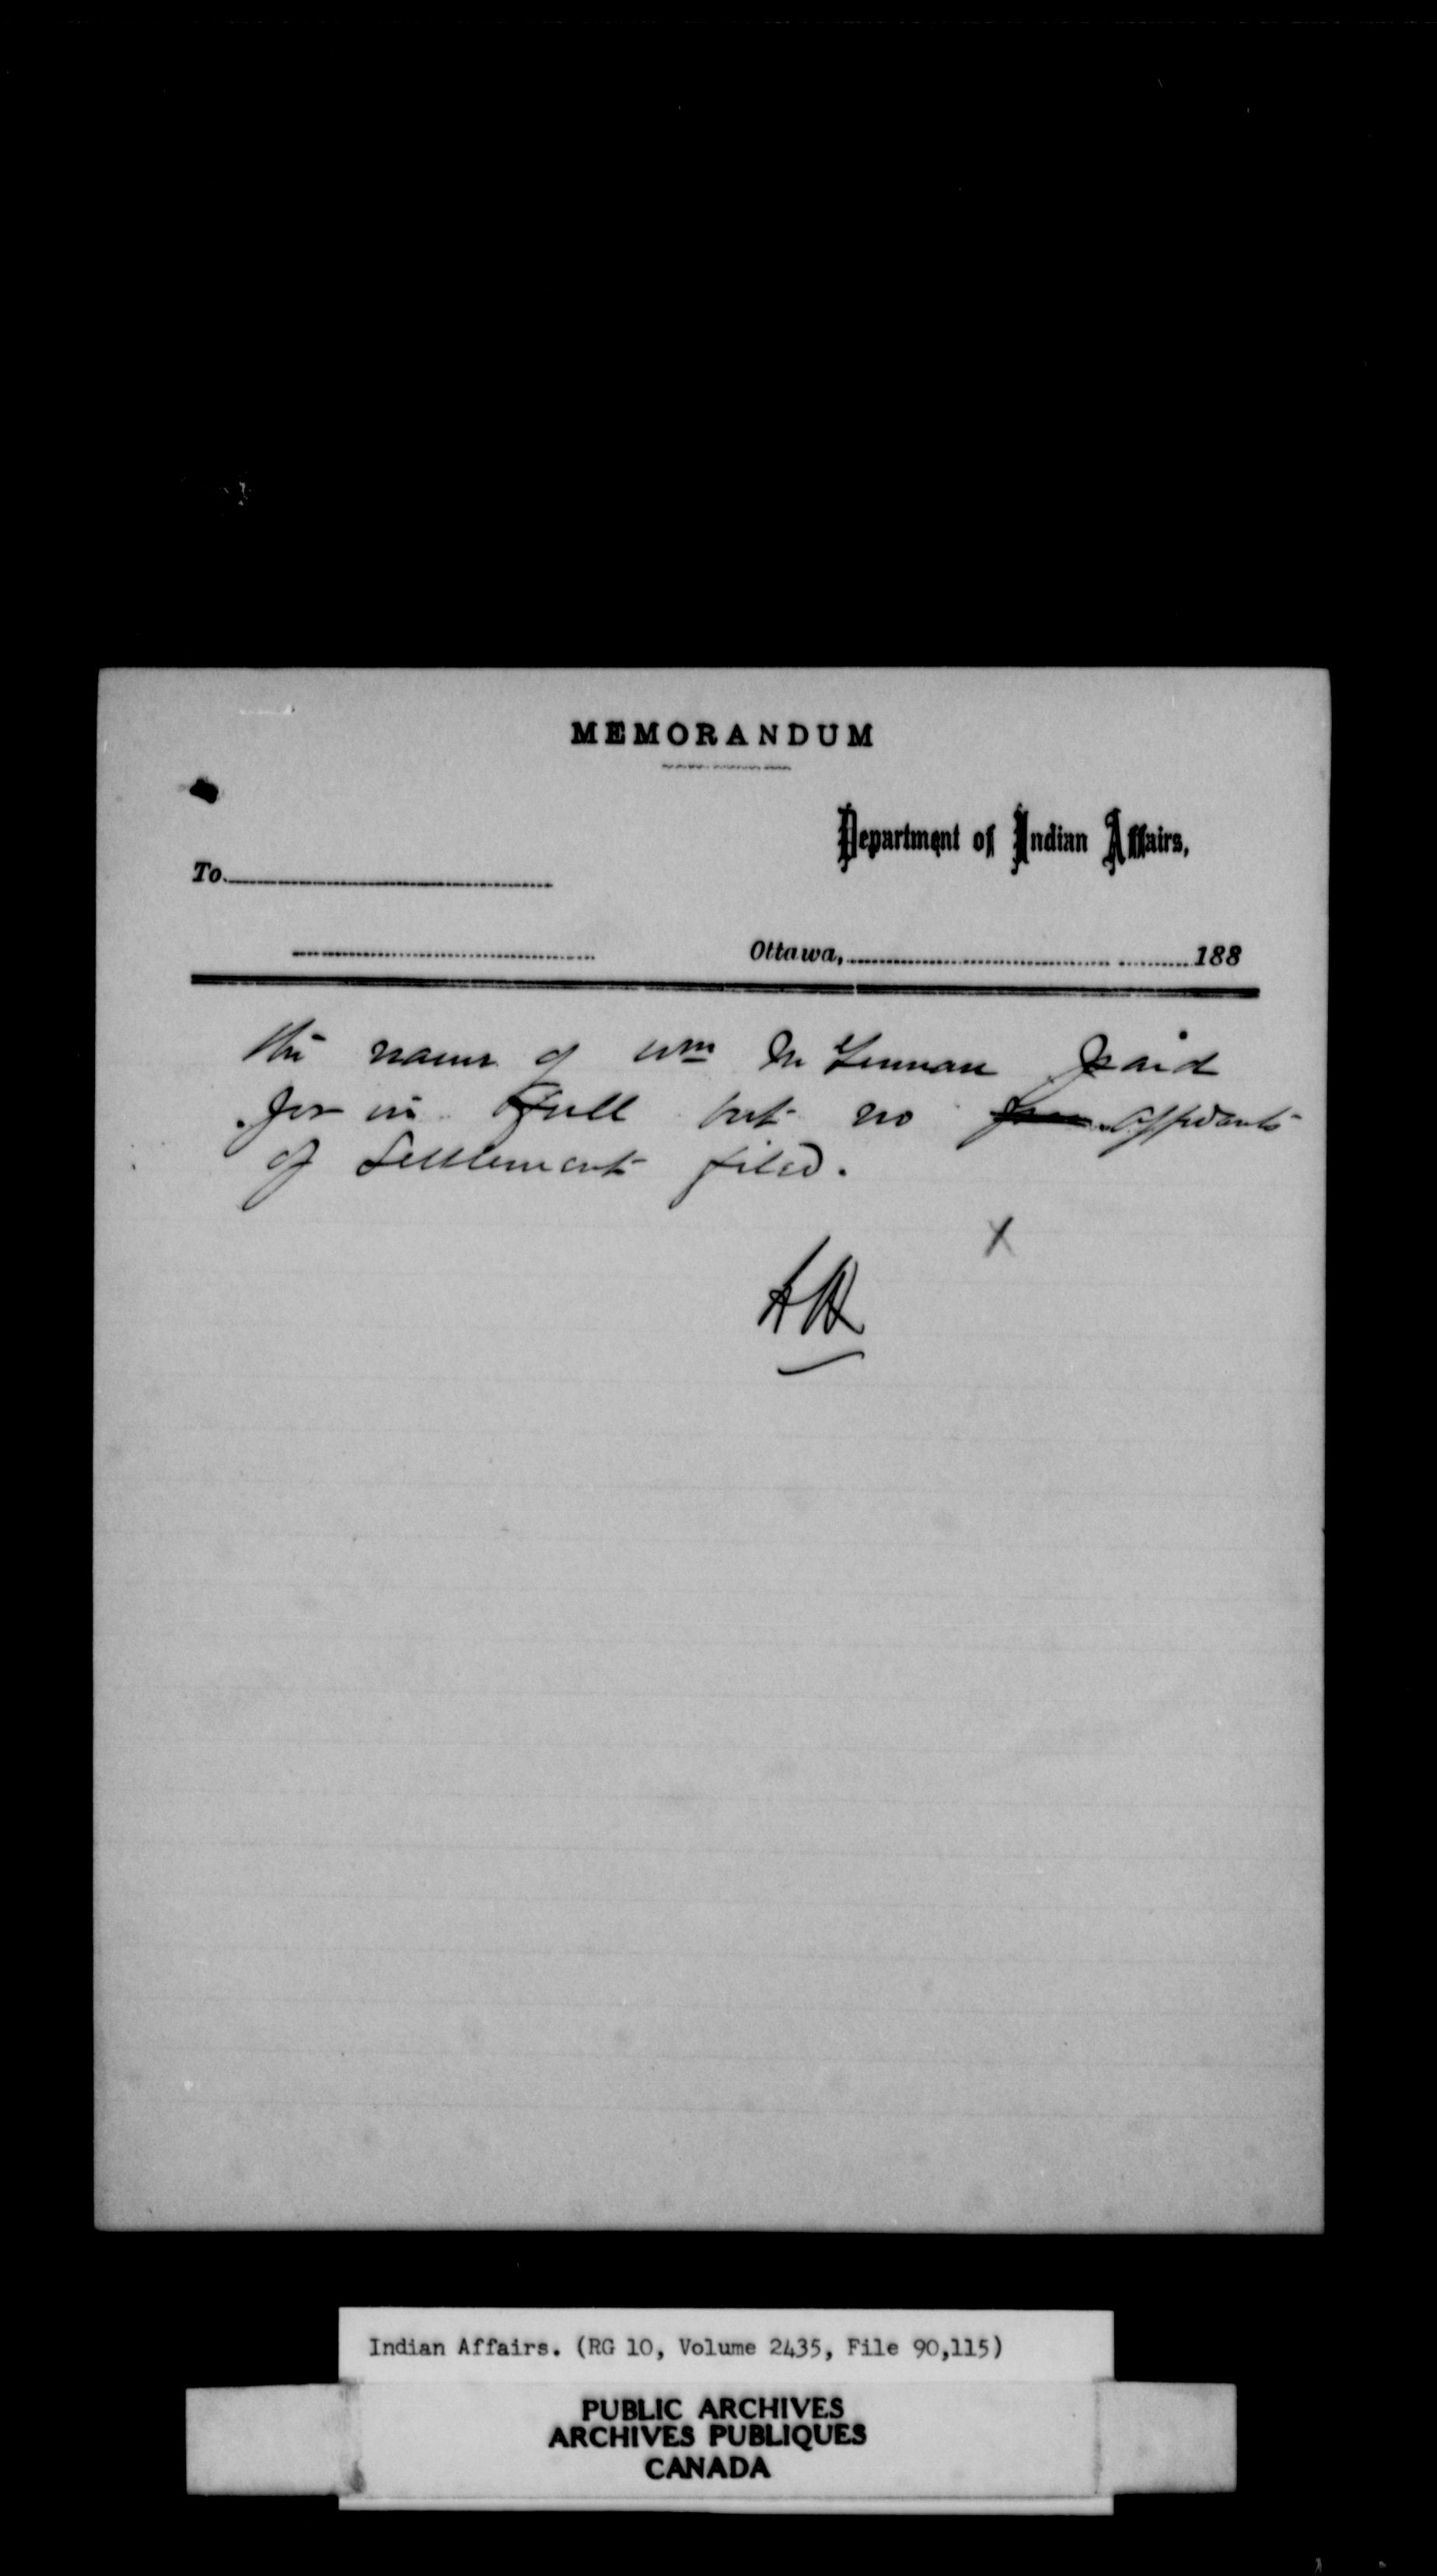 MEMORANDUM
Department of Indian Affairs,
To
Ottawa, 188
the name of Wm Mc paid
for in full but no affidavits
of Settlement filed.
X
Indian Affairs. (RG 10, Volume 2435, File 90,115)
PUBLIC ARCHIVES
ARCHIVES PUBLIQUES
CANADA